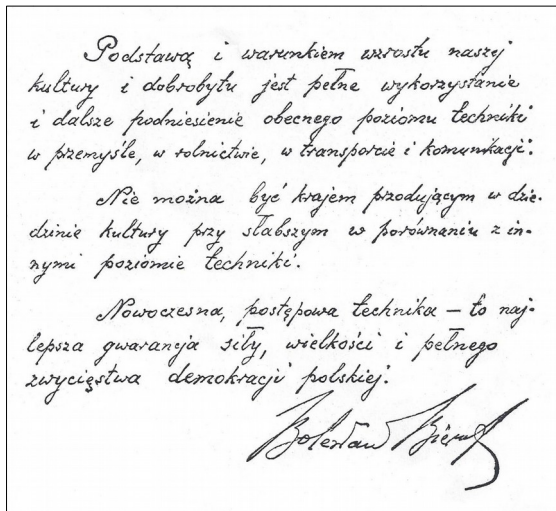 Podstawą i warunkiem wzrostu naszej
kultury i dobrobytu jest pełne wykorzystanie
i dalsze podniesienie obecnego poziomu techniki
w przemyśle, w rolnictwie, w transporcie i komunikacji.
Nie można być krajem przodującym w dzie-
dzinie kultury przy słabszym w porównaniu z in-
nymi poziomie techniki.
Nowoczesna, postępowa technika – to naj-
lepsza gwarancja siły, wielkości i pełnego
zwycięstwa demokracji polskiej.
Bolesław Bierut